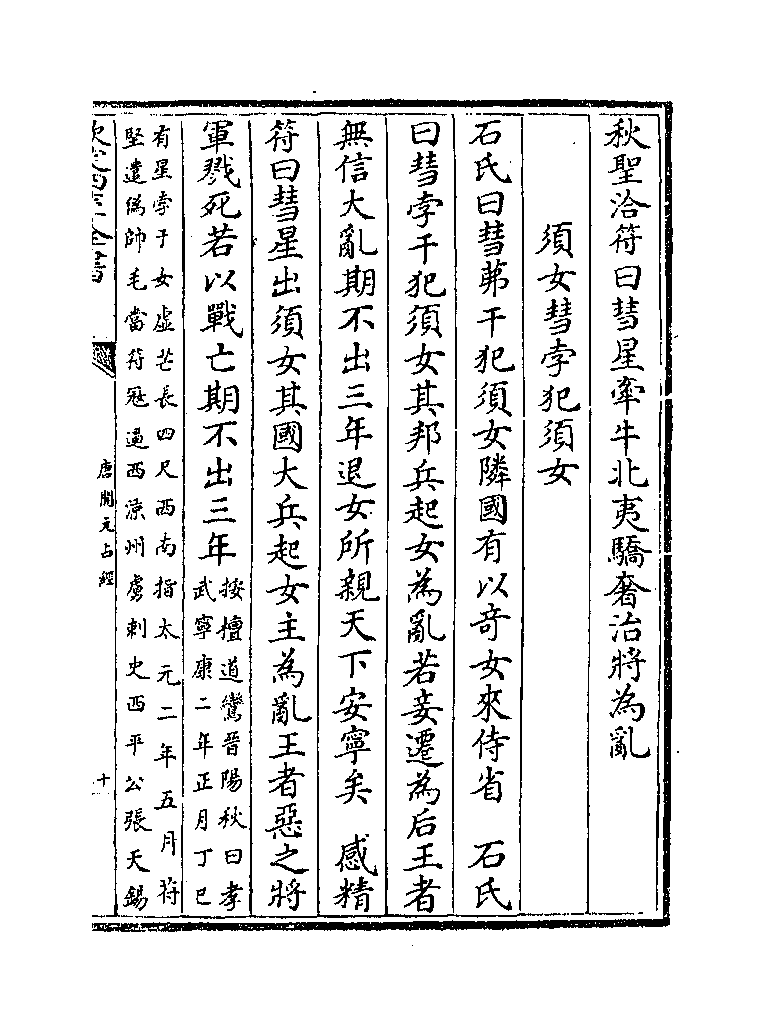 秋聖洽符曰彗星牽牛北夷驕奢治將為亂
須女彗孛犯須女
石氏曰彗茀干犯須女隣國有以奇女來侍省　石氏
曰彗孛干犯須女其邦兵起女為亂若妾遷為后王者
無信大亂期不出三年退女所親天下安寧矣　感精
符曰彗星出須女其國大兵起女主為亂王者惡之將
軍戮死若以戰亡期不出三年
按檀道鸞晉陽秋曰孝
武寧康二年正月丁巳
有星孛于女虛芒長四尺西南指太元二年五月苻
堅遣偽帥毛當苻冠逼西涼州虜刺史西平公張天錫
欽定四庫全書
唐開元占經
十